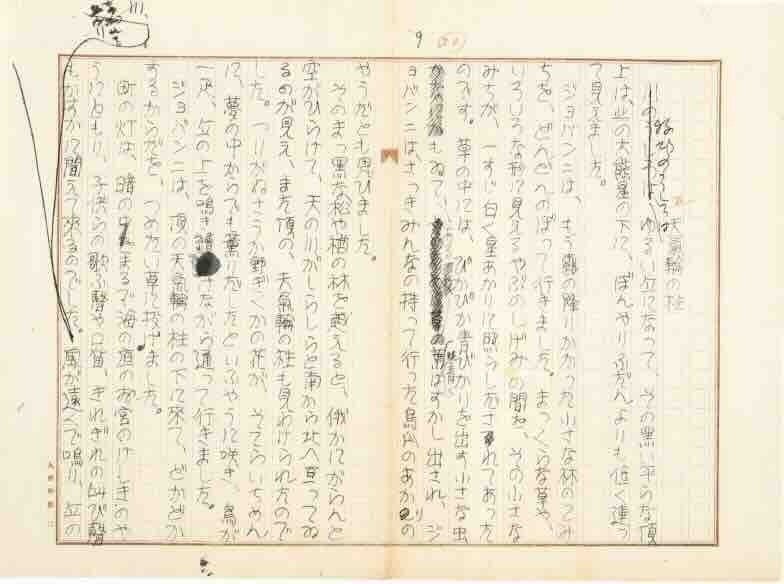 9
天氣輪の柱
ゆるい丘になって、その黒い平らな頂
上は、北の大熊星の下に、ぼんやりふだんよりも低く連っ
て見えました。
ジョバンニは、もう露の降りかかった小さな林のこみ
ちを、どんどんのぼって行きました。まっくらな草や、
いろいろな形に見えるやぶのしげみの間を、その小さな
みちが、一すじ白く星あかりに照らしだされてあった
のです。草の中には、ぴかぴか青びかりを出す小さな虫
もゐて、ある葉は青くすかし出され、ジ
ョバンニは、さっきみんなの持って行った烏瓜のあかりの
やうだとも思ひました。
そのまっ黒な松や楢の林を越えると、俄かにがらんと
空がひらけて、天の川がしらしらと南から北へ亘ってゐ
るのが見え、また頂の、天氣輪の柱も見わけられたので
した。つりがねさうか野ぎくかの花が、そこらいちめん
に、夢の中からでも薫りだしたといふやうに咲き、鳥が
一疋、丘の上を鳴き續けながら通って行きました。
ジョバンニは、頂の天氣輪の柱の下に來て、どかどか
するからだを、つめたい草に投げました。
町の灯は、暗の中をまるで海の底のお宮のけしきのや
うにともり、子供らの歌ふ聲や口笛、きれぎれの叫び聲
もかすかに聞えて來るのでした。風が遠くで鳴り、丘の